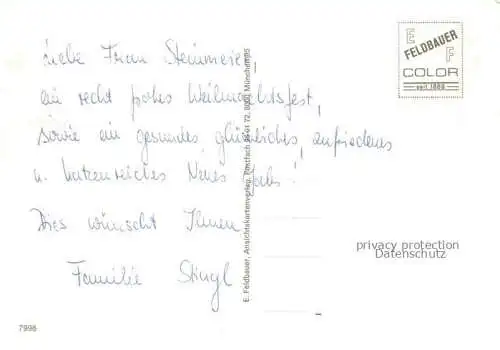 Liebe Frau Steinmeier
ein recht frohes Weihnachtsfest,
sowie ein gesundes, glückliches, zufriedenes
u. nutzenreiches Neues Jahr!
Dies wünscht Ihnen
Familie Stingl
7998
E. Feldbauer, Ansichtskartenverlag, Postfach 95 01 72, 8000 München 95
E
FELDBAUER
F
COLOR
seit 1889
privacy protection
Datenschutz